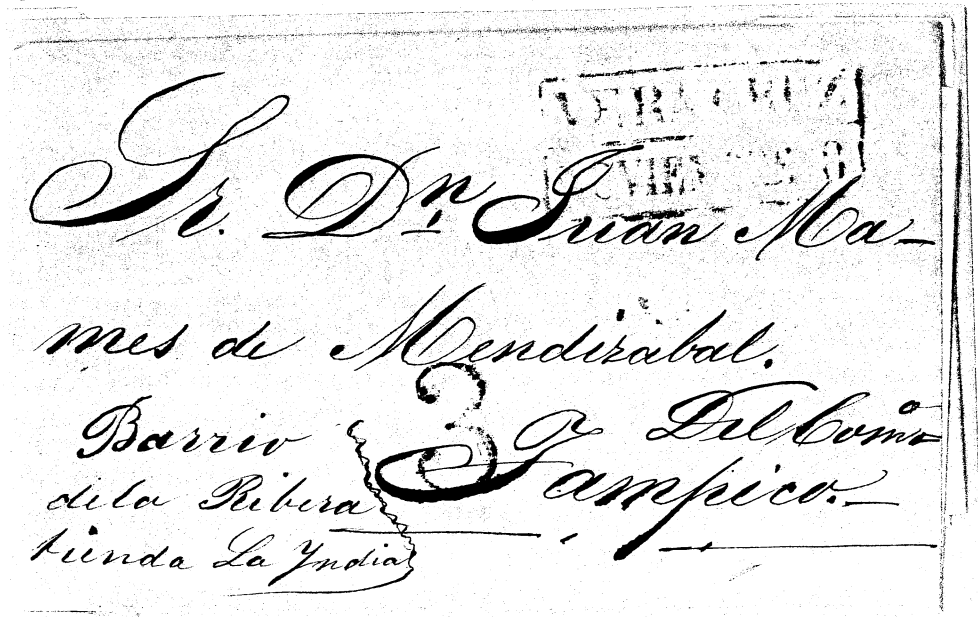 VERACRUZ
Sr. Dn. Juan Ma-
mes de Mendizabal.
3
Del Como
Tampico.
Barrio
de la Ribera
tienda La Yndia